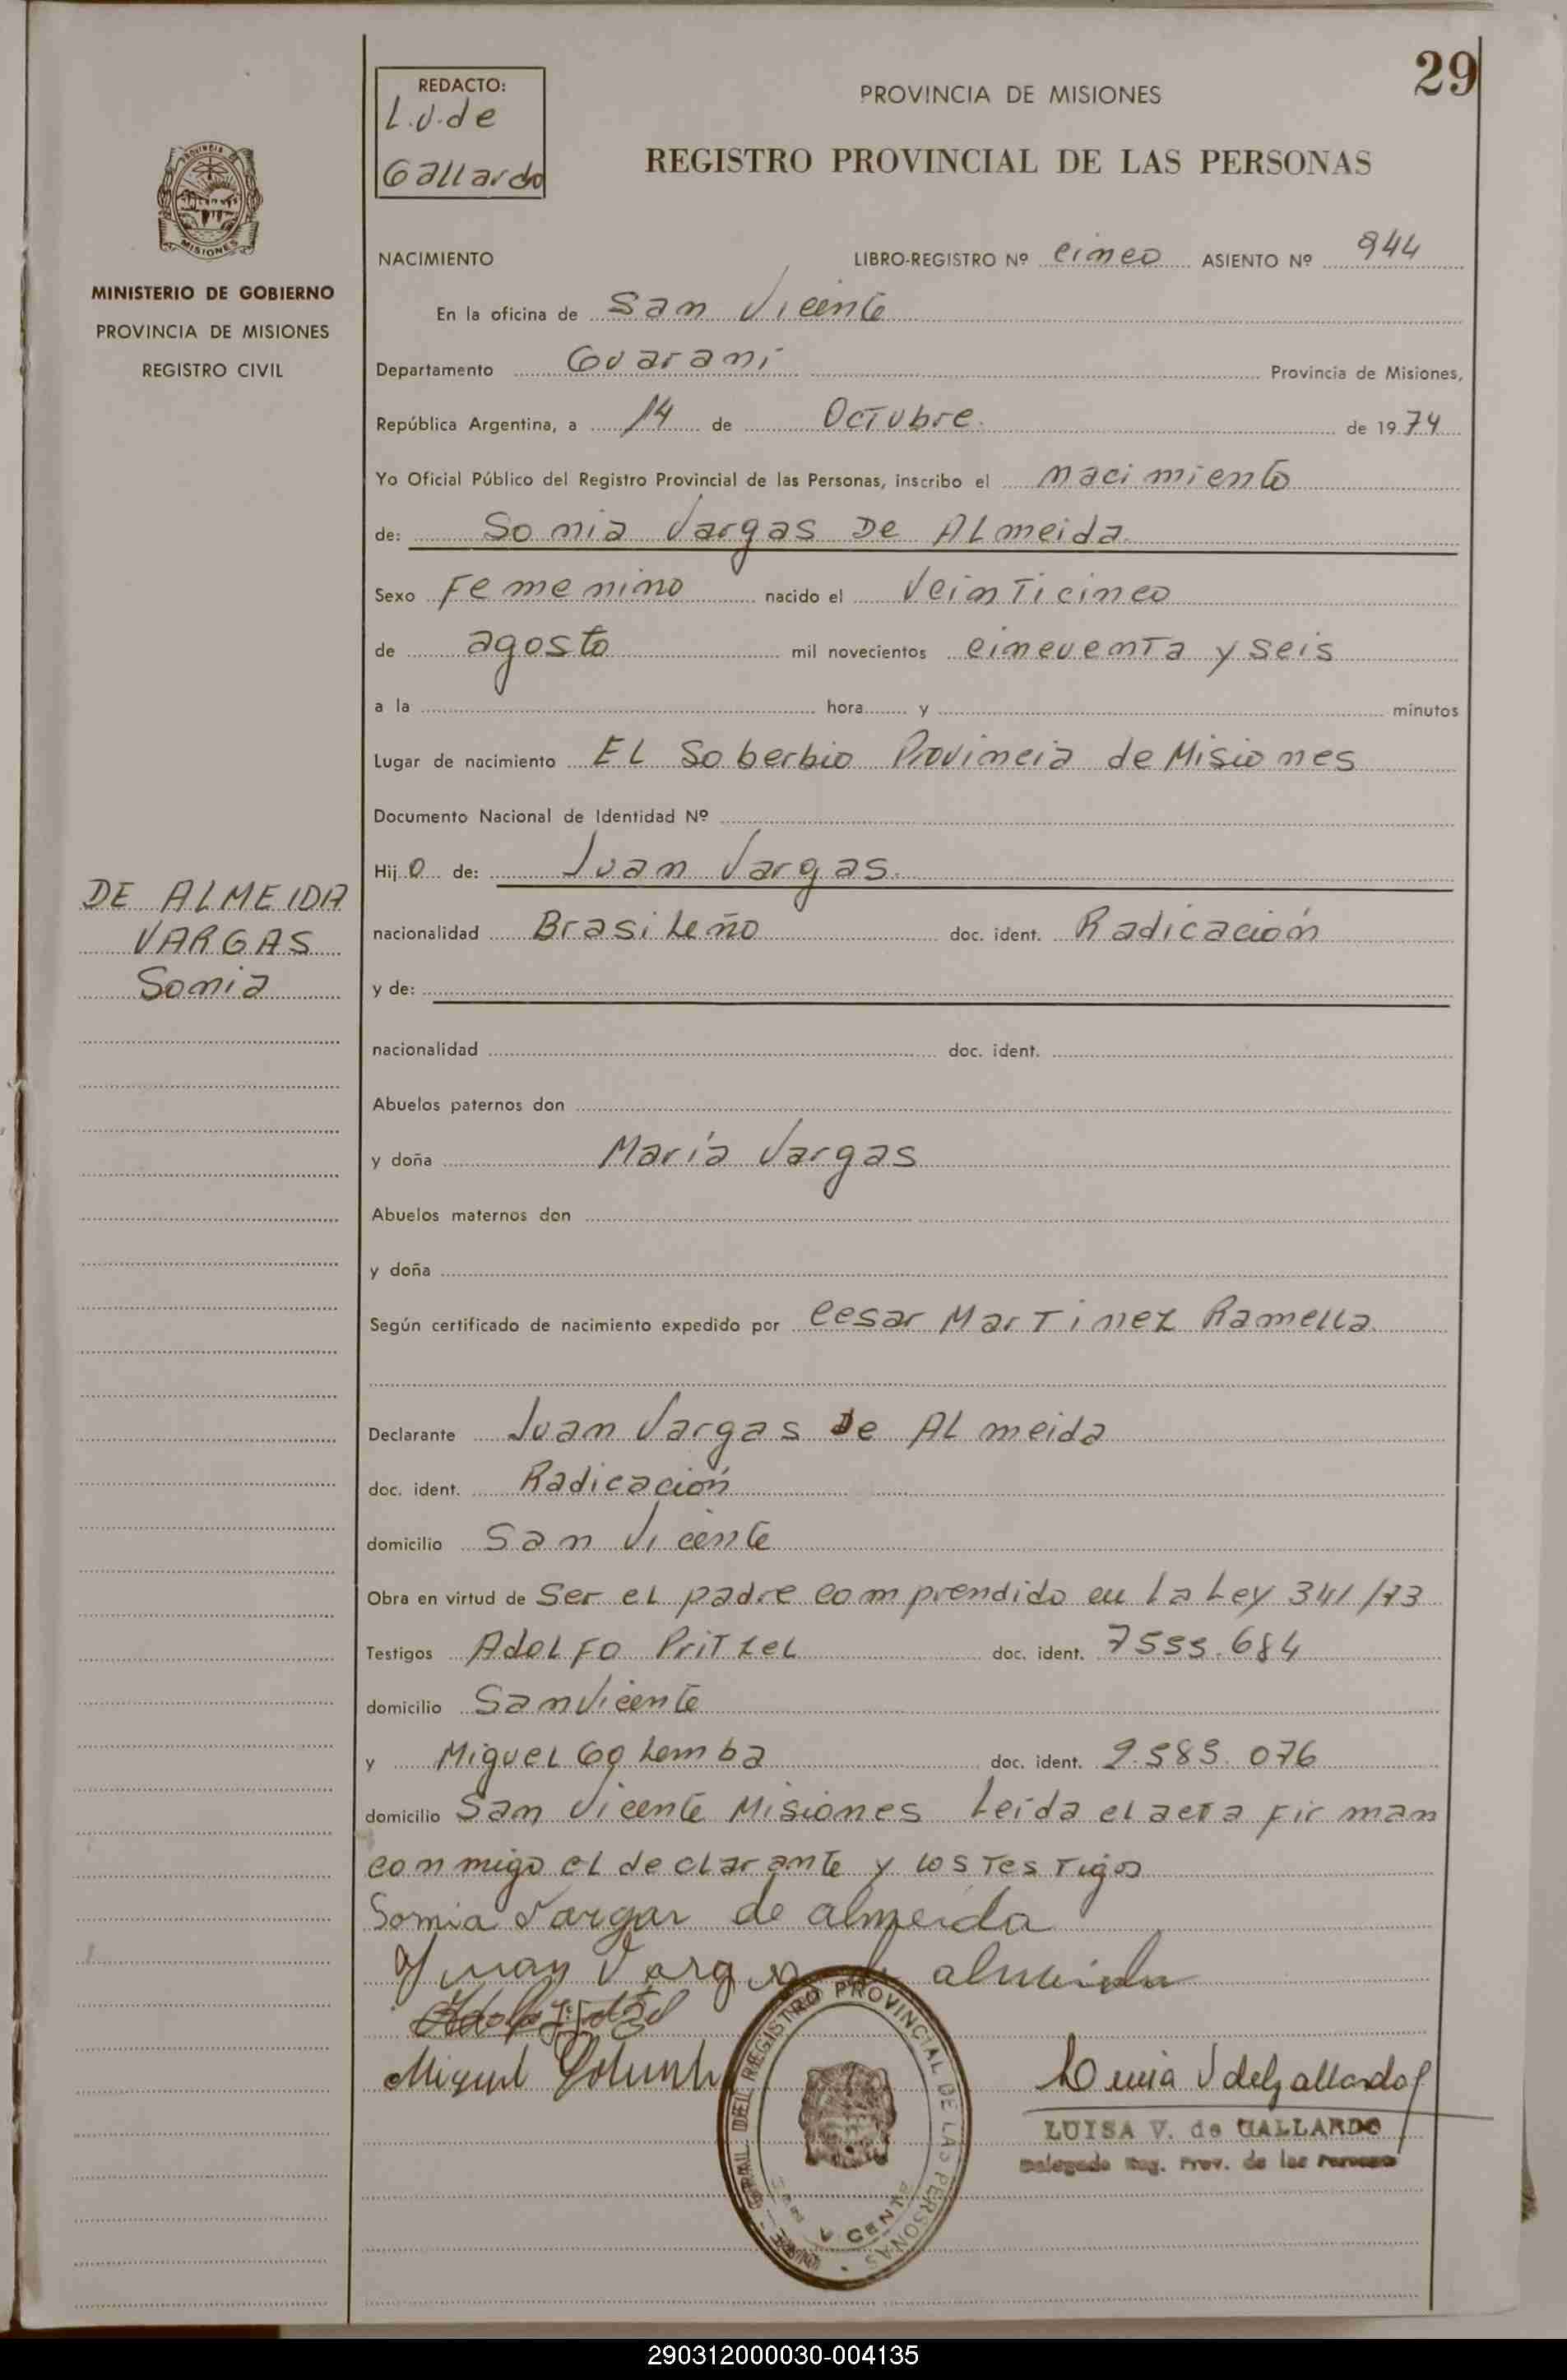 29
REDACTO:
L.V.de
Gallardo
PROVINCIA DE MISIONES
REGISTRO PROVINCIAL DE LAS PERSONAS
MINISTERIO DE GOBIERNO
PROVINCIA DE MISIONES
REGISTRO CIVIL
NACIMIENTO LIBRO-REGISTRO Nº cinco ASIENTO Nº 944
En la oficina de San Vicente
Departamento Guaraní Provincia de Misiones,
República Argentina, a 14 de Octubre. de 1974
Yo Oficial Público del Registro Provincial de las Personas, inscribo el nacimiento
de: Sonia Vargas De Almeida
Sexo Femenino nacido el Veinticinco
de agosto mil novecientos cincuenta y seis
a la hora y minutos
Lugar de nacimiento El Soberbio Provincia de Misiones
Documento Nacional de Identidad Nº
Hijo de: Juan Vargas.
DE ALMEIDA
VARGAS
Sonia
nacionalidad Brasileño doc. ident. Radicación
y de:
nacionalidad doc. ident.
Abuelos paternos don
y doña María Vargas
Abuelos maternos don
y doña
Según certificado de nacimiento expedido por Cesar Martinez Ramella
Declarante Juan Vargas De Almeida
doc. ident. Radicación
domicilio San Vicente
Obra en virtud de Ser el padre comprendido en la Ley 341/73
Testigos Adolfo Pritzel doc. ident. 7555.684
domicilio San Vicente
y Miguel doc. ident. 2.585.076
domicilio San Vicente Misiones Leída el acta firman
conmigo el declarante y los Testigos
Sonia Vargas de almeida
Juan Vargas de almeida
Miguel
LUISA V. de GALLARDO
Delegada Reg. Prov. de las Personas
REGISTRO PROVINCIAL DE LAS PERSONAS
290312000030-004135